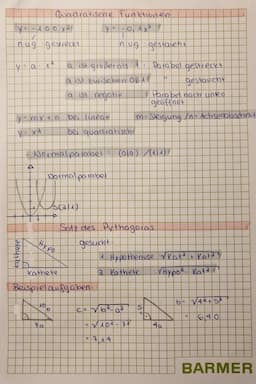 Quadratische Funktionen
n ug gestreckt n ug gestaucht
y = a · x² a ist größer als 1 → Parabel gestreckt
a ist zwischen 0&1 → " gestaucht
a ist negativ → Parabel nach unten geöffnet
y = mx + n bei linear m = Steigung / n = Achsenabschnitt
y = x² bei quadratisch
Normalparabel (0|0) / (1|1)
Normalparabel
Satz des Pythagoras
gesucht
Kathete
Hypo
1. Hypothenuse √Kat² + Kat²
Kathete
2. Kathete √Hypo² - Kat²
Beispielaufgaben:
c = √b² - a²
= √10² - 7²
= 7,14
b = √4² + 5²
= 6,40
BARMER